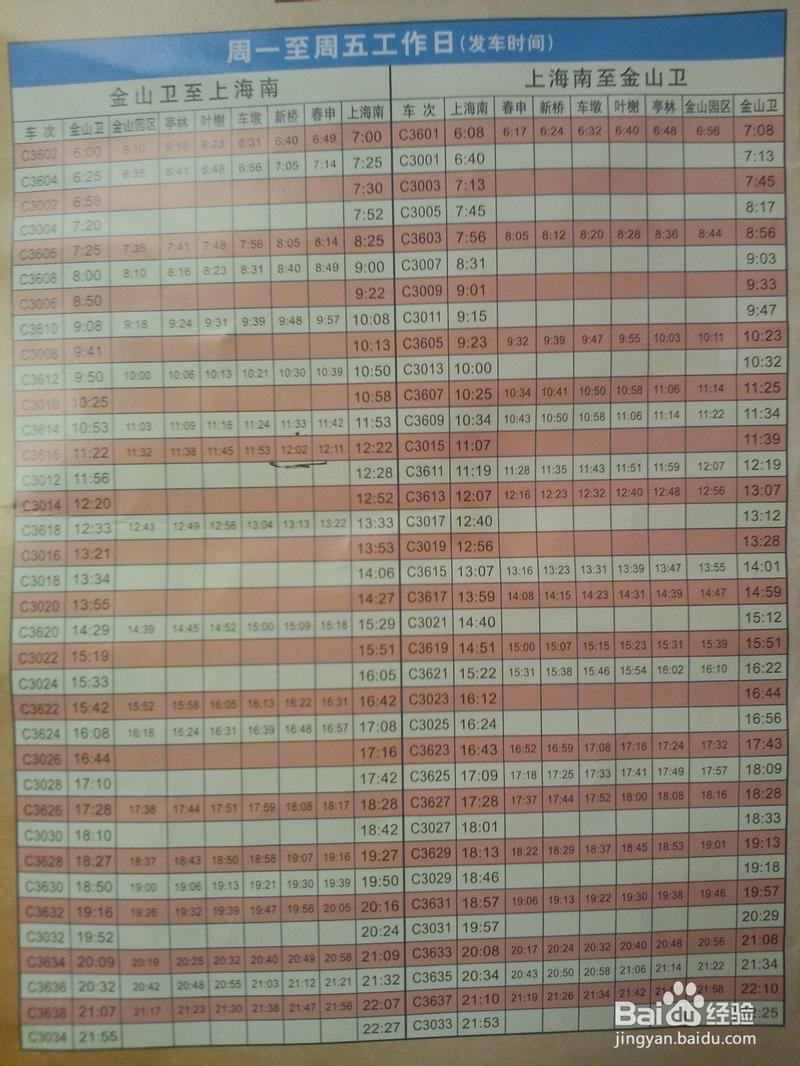 周一至周五工作日(发车时间)
金山卫至上海南
上海南至金山卫
车次 金山卫 金山园区 亭林 叶榭 车墩 新桥 春申 上海南 车次 上海南 春申 新桥 车墩 叶榭 亭林 金山园区 金山卫
C3602 6:00 6:10 6:16 6:23 6:31 6:40 6:49 7:00 C3601 6:08 6:17 6:24 6:32 6:40 6:48 6:56 7:08
C3604 6:25 6:35 6:41 6:48 6:56 7:05 7:14 7:25 C3001 6:40 7:13
C3002 6:58 7:30 C3003 7:13 7:45
C3004 7:20 7:52 C3005 7:45 8:17
C3606 7:25 7:35 7:41 7:48 7:56 8:05 8:14 8:25 C3603 7:56 8:05 8:12 8:20 8:28 8:36 8:44 8:56
C3608 8:00 8:10 8:16 8:23 8:31 8:40 8:49 9:00 C3007 8:31 9:03
C3006 8:50 9:22 C3009 9:01 9:33
C3610 9:08 9:18 9:24 9:31 9:39 9:48 9:57 10:08 C3011 9:15 9:47
C3008 9:41 10:13 C3605 9:23 9:32 9:39 9:47 9:55 10:03 10:11 10:23
C3612 9:50 10:00 10:06 10:13 10:21 10:30 10:39 10:50 C3013 10:00 10:32
C3010 10:25 10:58 C3607 10:25 10:34 10:41 10:50 10:58 11:06 11:14 11:25
C3614 10:53 11:03 11:09 11:16 11:24 11:33 11:42 11:53 C3609 10:34 10:43 10:50 10:58 11:06 11:14 11:22 11:34
C3616 11:22 11:32 11:38 11:45 11:53 12:02 12:11 12:22 C3015 11:07 11:39
C3012 11:56 12:28 C3611 11:19 11:28 11:35 11:43 11:51 11:59 12:07 12:19
C3014 12:20 12:52 C3613 12:07 12:16 12:23 12:32 12:40 12:48 12:56 13:07
C3618 12:33 12:43 12:49 12:56 13:04 13:13 13:22 13:33 C3017 12:40 13:12
C3016 13:21 13:53 C3019 12:56 13:28
C3018 13:34 14:06 C3615 13:07 13:16 13:23 13:31 13:39 13:47 13:55 14:01
C3020 13:55 14:27 C3617 13:59 14:08 14:15 14:23 14:31 14:39 14:47 14:59
C3620 14:29 14:39 14:45 14:52 15:00 15:09 15:18 15:29 C3021 14:40 15:12
C3022 15:19 15:51 C3619 14:51 15:00 15:07 15:15 15:23 15:31 15:39 15:51
C3024 15:33 16:05 C3621 15:22 15:31 15:38 15:46 15:54 16:02 16:10 16:22
C3622 15:42 15:52 15:58 16:05 16:13 16:22 16:31 16:42 C3023 16:12 16:44
C3624 16:08 16:18 16:24 16:31 16:39 16:48 16:57 17:08 C3025 16:24 16:56
C3026 16:44 17:16 C3623 16:43 16:52 16:59 17:08 17:16 17:24 17:32 17:43
C3028 17:10 17:42 C3625 17:09 17:18 17:25 17:33 17:41 17:49 17:57 18:09
C3626 17:28 17:38 17:44 17:51 17:59 18:08 18:17 18:28 C3627 17:28 17:37 17:44 17:52 18:00 18:08 18:16 18:28
C3030 18:10 18:42 C3027 18:01 18:33
C3628 18:27 18:37 18:43 18:50 18:58 19:07 19:16 19:27 C3629 18:13 18:22 18:29 18:37 18:45 18:53 19:01 19:13
C3630 18:50 19:00 19:06 19:13 19:21 19:30 19:39 19:50 C3029 18:46 19:18
C3632 19:16 19:26 19:32 19:39 19:47 19:56 20:05 20:16 C3631 18:57 19:06 19:13 19:22 19:30 19:38 19:46 19:57
C3032 19:52 20:24 C3031 19:57 20:29
C3634 20:09 20:19 20:25 20:32 20:40 20:49 20:58 21:09 C3633 20:08 20:17 20:24 20:32 20:40 20:48 20:56 21:08
C3636 20:32 20:42 20:48 20:55 21:03 21:12 21:21 21:32 C3635 20:34 20:43 20:50 20:58 21:06 21:14 21:22 21:34
C3638 21:07 21:17 21:23 21:30 21:38 21:47 21:56 22:07 C3637 21:10 21:19 21:26 21:34 21:42 21:58 22:10
C3034 21:55 22:27 C3033 21:53 :25
Baidu经验
jingyan.baidu.com